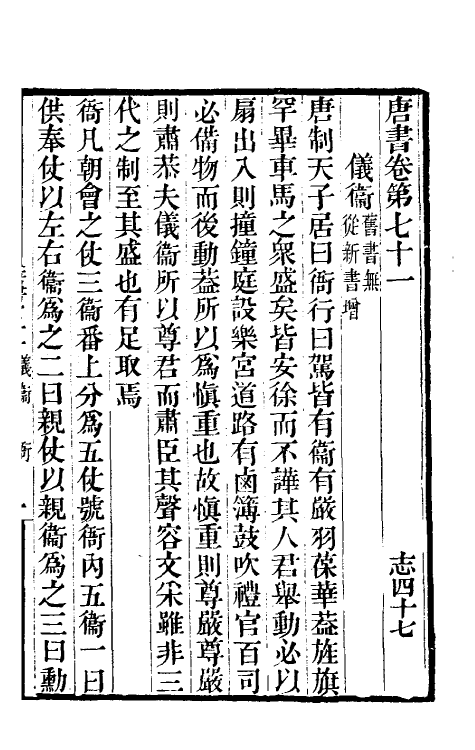 唐書卷第七十一
志四十七
儀衞舊書無從新書增
唐制天子居曰衙行曰駕皆有衞有嚴羽葆華葢旌旗
罕畢車馬之衆盛矣皆安徐而不譁其人君舉動必以
扇出入則撞鐘庭設樂宮道路有鹵簿鼓吹禮官百司
必備物而後動葢所以爲愼重也故愼重則尊嚴尊嚴
則肅恭夫儀衞所以尊君而肅臣其聲容文采雖非三
代之制至其盛也有足取焉
衙凡朝會之仗三衞番上分爲五仗號衙內五衞一曰
供奉仗以左右衞爲之二曰親仗以親衞爲之三曰勳
儀衞
衙
一